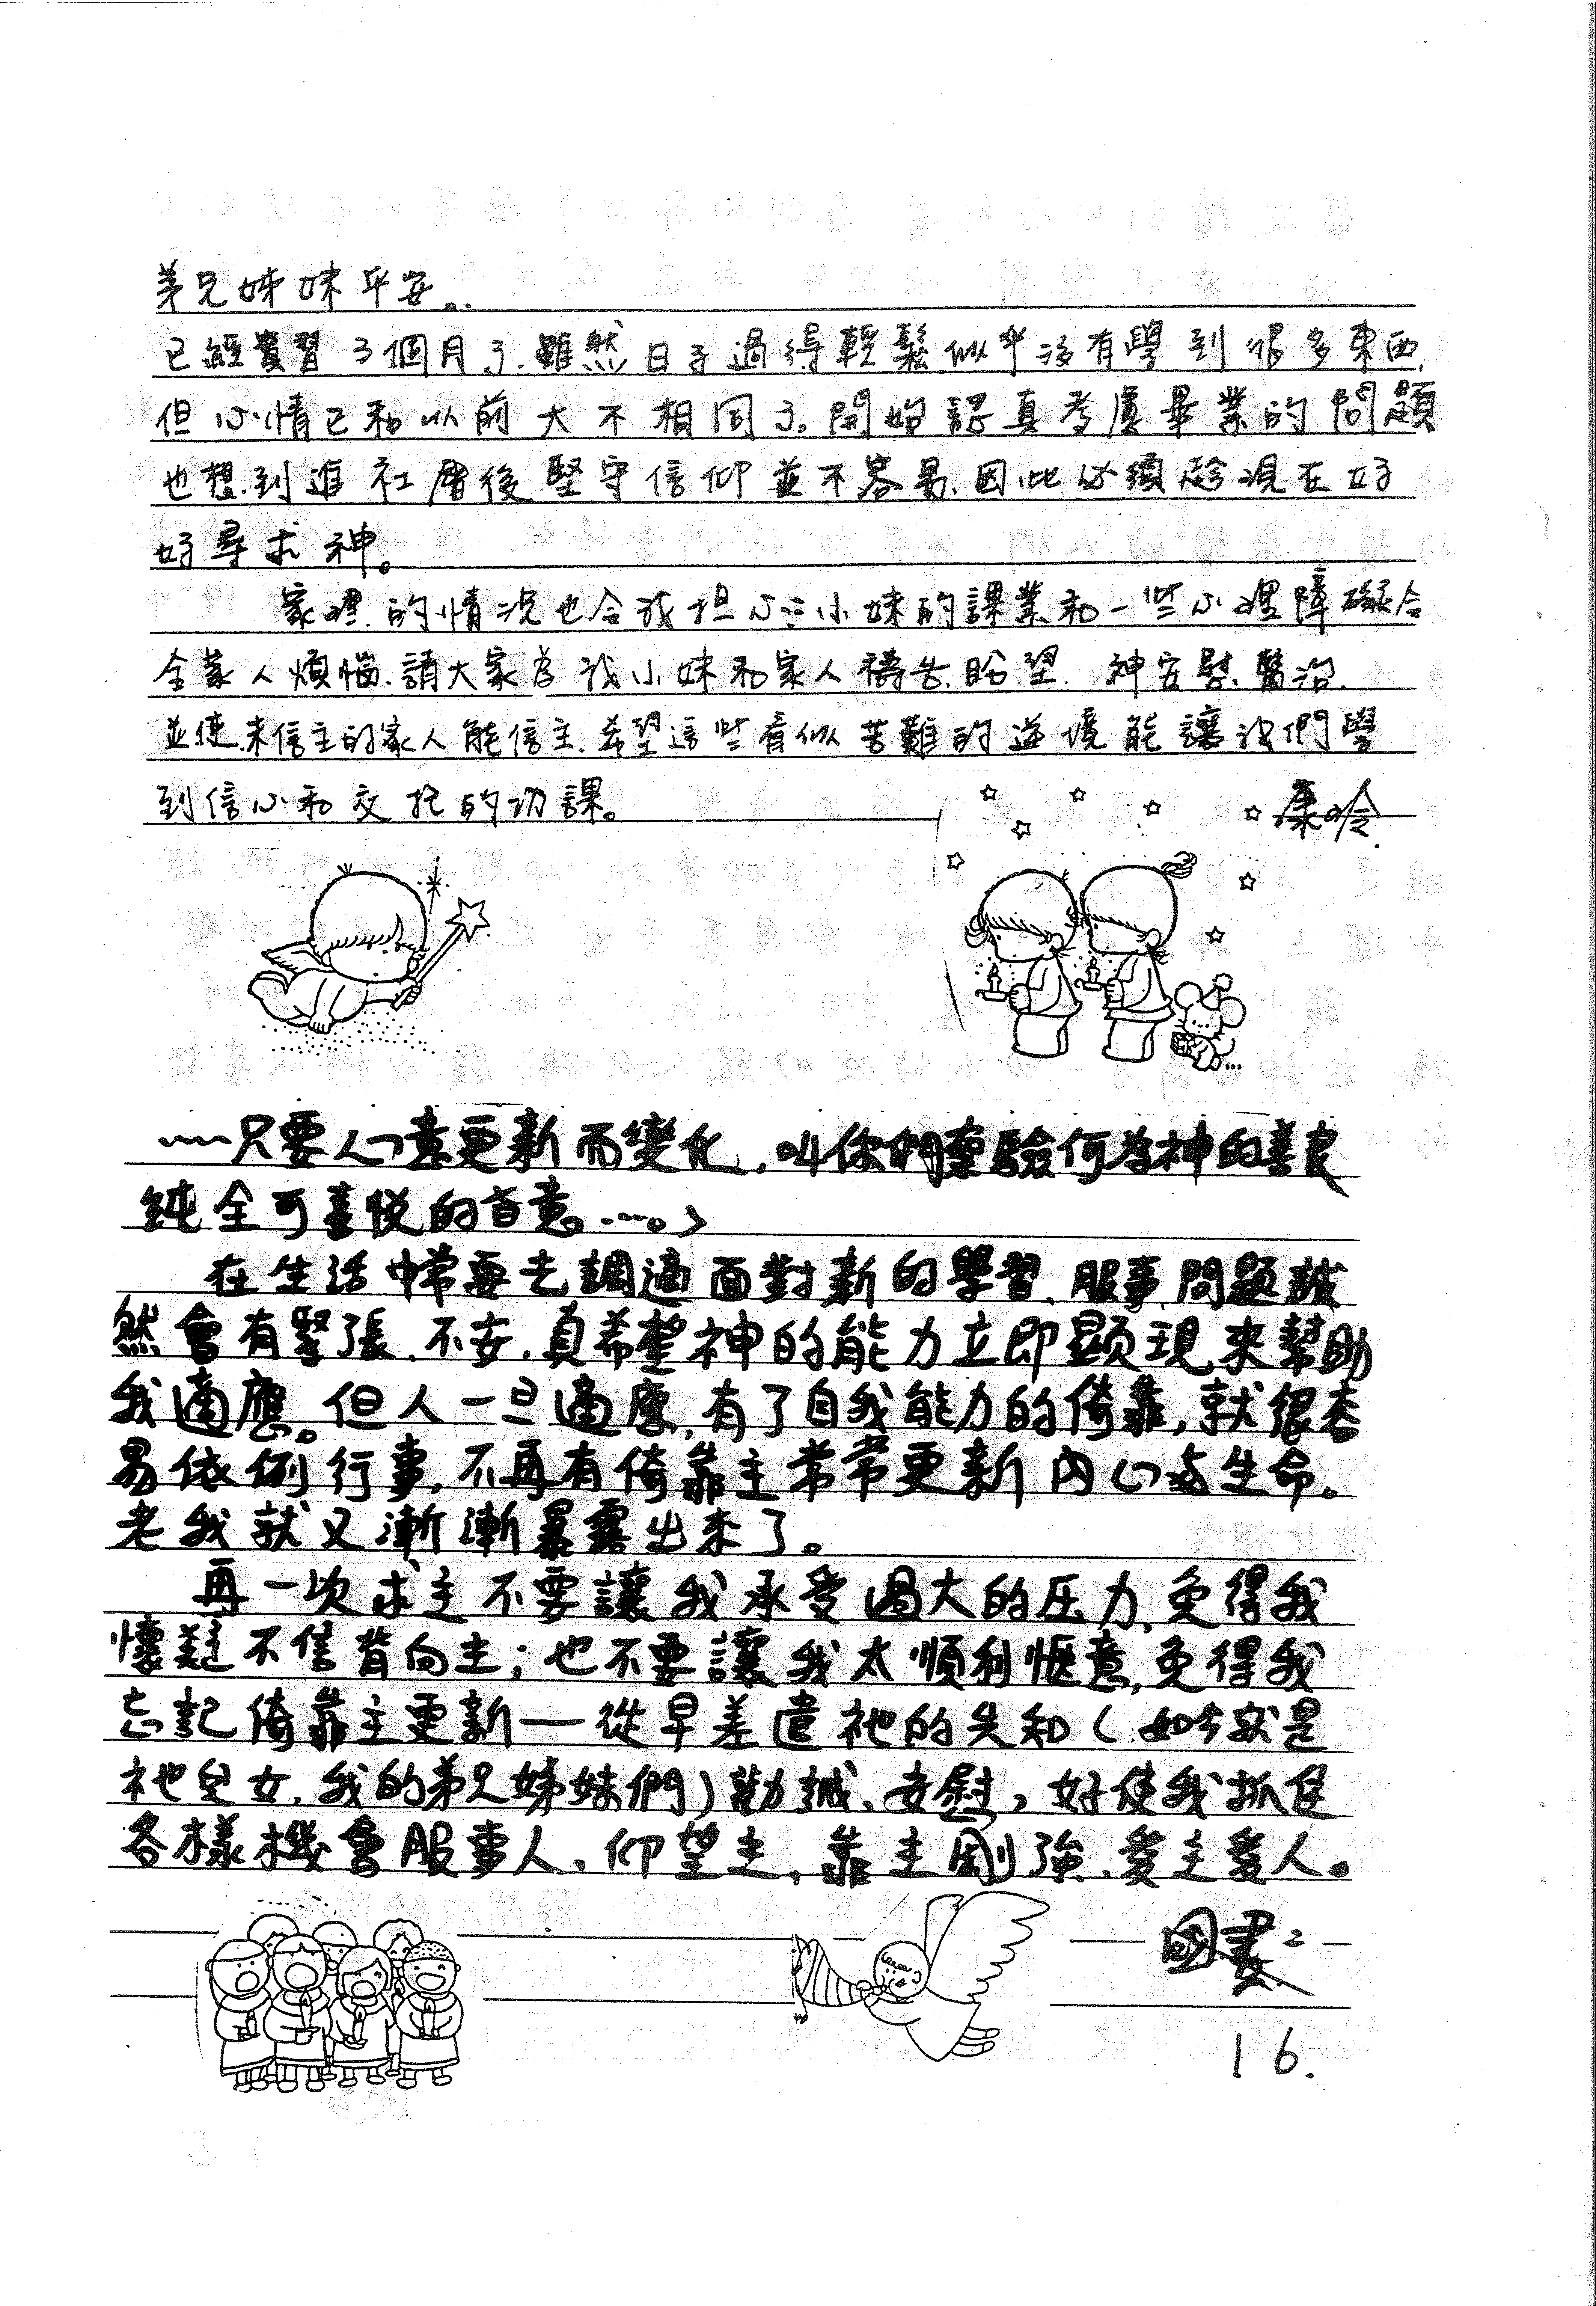 弟兄姊妹平安。
已經實習3個月了.雖然日子過得輕鬆似乎沒有學到很多東西,
但心情已和以前大不相同了。開始認真考慮畢業的問題
也想到進社會後堅守信仰並不容易.因此必須趁現在好
好尋求神。
家裡的情況也令我担心;小妹的課業和一些心理障礙令
全家人煩惱.請大家為我小妹和家人禱告.盼望 神安慰.醫治.
並使未信主的家人能信主.希望這些看似苦難的逆境能讓我們學
到信心和交托的功課。
康
……只要心意更新而變化,叫你們察驗何為神的善良
純全可喜悅的旨意。……。
在生活中常要去調適面對新的學習、服事、問題誠
然會有緊張、不安,真希望神的能力立即顯現來幫助
我適應。但人一旦適應,有了自我能力的倚靠,就很容
易依例行事,不再有倚靠主常常更新內心與生命。
老我就又漸漸暴露出來了。
再一次求主不要讓我承受過大的压力,免得我
懷疑不信背向主;也不要讓我太順利愜意,免得我
忘記倚靠主更新—從早差遣祂的先知(如今就是
祂兒女,我的弟兄姊妹們)勸誡、安慰,好使我抓住
各樣機會服事人、仰望主,靠主剛強、愛主愛人。
國
16.